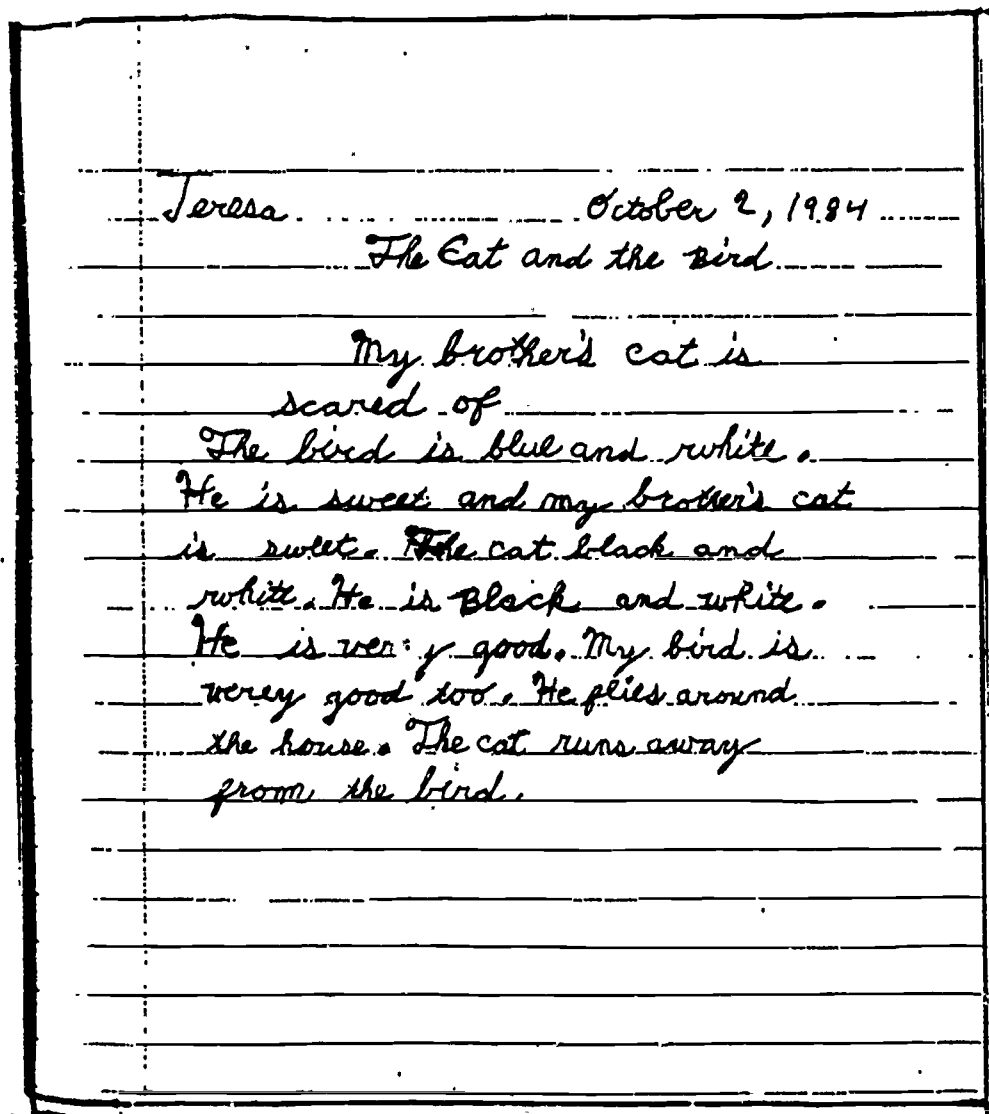 Teresa October 2, 1984
The Cat and the Bird
My brother's cat is
scared of
The bird is blue and white.
He is sweet and my brother's cat
is sweet. The cat black and
white. He is Black and white.
He is very good. My bird is
verey good too. He flies around
the house. The cat runs away
from the bird.